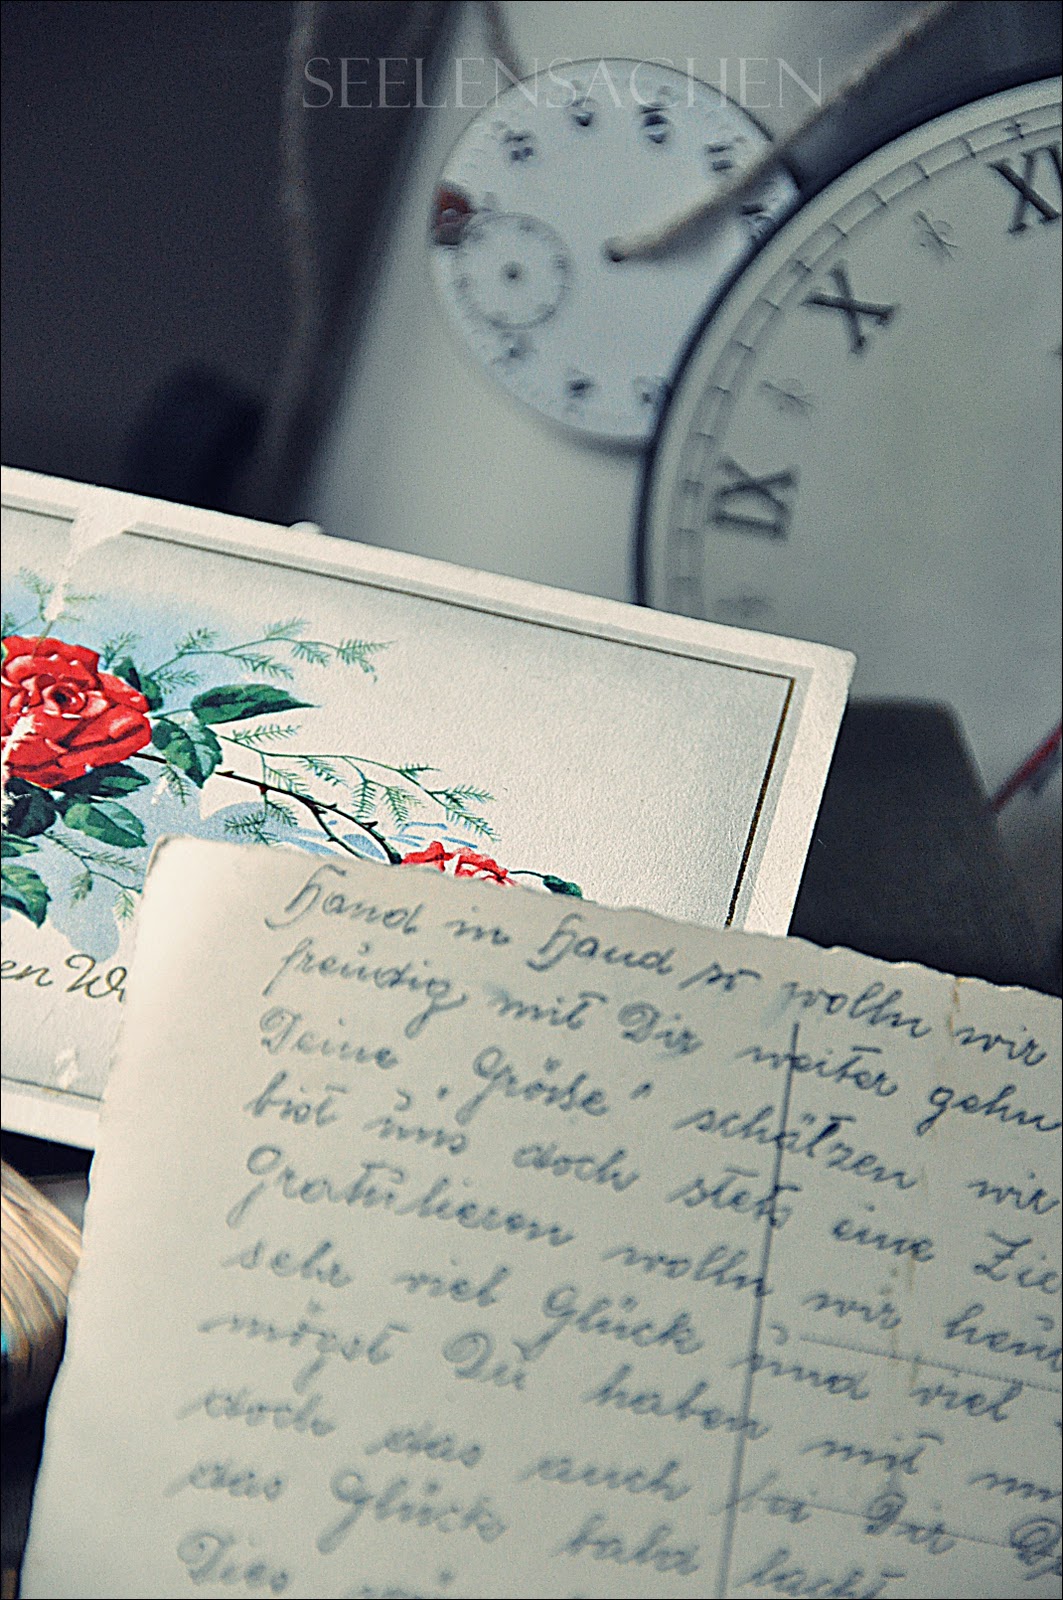 SEELENSACHEN
XI
X
IX
en
Hand in Hand so wolln wir
freudig mit Dir weiter gehn
Deine "Größe" schätzen wir
bist uns doch stets eine Zie
Gratulieren wolln wir heut
sehr viel Glück und viel
mögst Du haben mit
doch das auch bei Dir
das Glück bald lacht
Dies